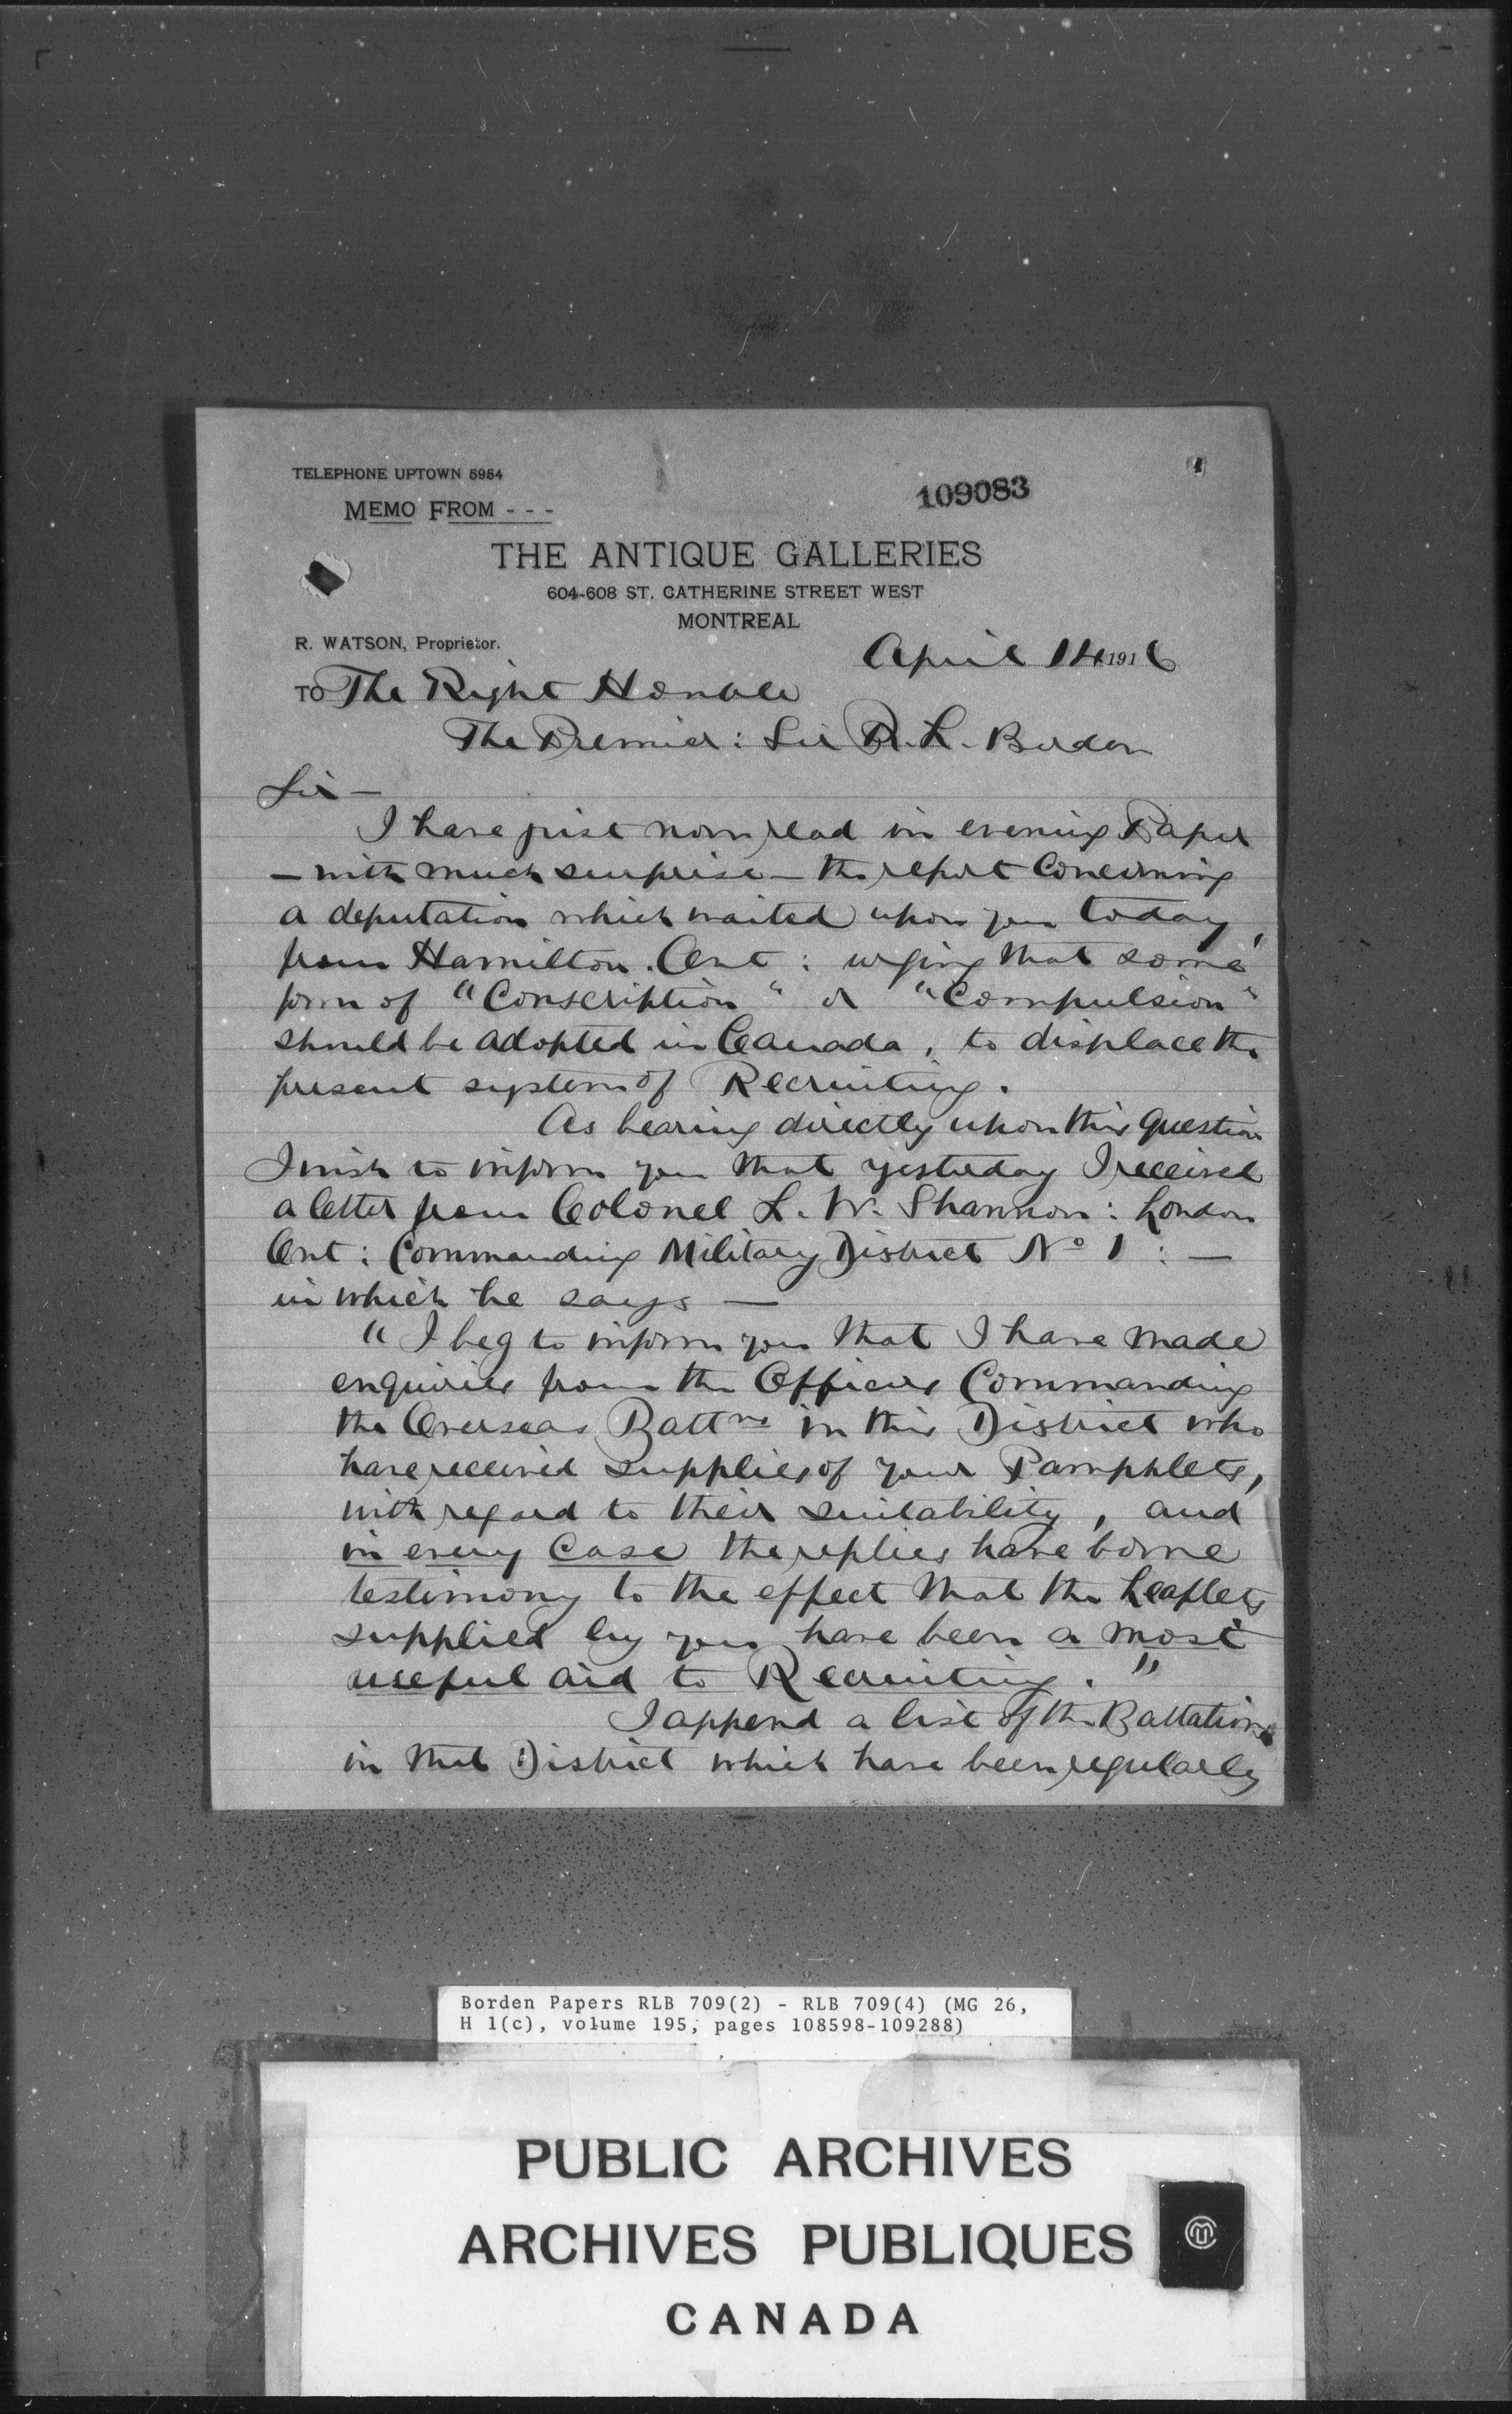 TELEPHONE UPTOWN 5954
109083
MEMO FROM - - -
THE ANTIQUE GALLERIES
604-608 ST. CATHERINE STREET WEST
MONTREAL
R. WATSON, Proprietor.
April 14 1916
TO The Right Honble
The Premier: Sir R. L. Borden
Sir —
I have just now read in evening Paper
— with much surprise — the report Concerning
a deputation which waited upon you today,
from Hamilton. Ont: urging that some
form of "Conscription" or "Compulsion"
should be adopted in Canada, to displace the
present system of Recruiting.
As bearing directly upon this Question
I wish to inform you that yesterday I received
a letter from Colonel L. W. Shannon: London
Ont: Commanding Military District No 1: —
in which he says —
"I beg to inform you that I have made
enquiries from the Officers Commanding
the Overseas Battns in this District who
have received supplies of your Pamphlets,
with regard to their suitability, and
in every Case the replies have borne
testimony to the effect that the Leaflets
supplied by you have been a most
useful aid to Recruiting."
I append a list of the Battalions
in that District which have been regularly
Borden Papers RLB 709(2) - RLB 709(4) (MG 26,
H 1(c), volume 195, pages 108598-109288)
PUBLIC ARCHIVES
ARCHIVES PUBLIQUES
CANADA